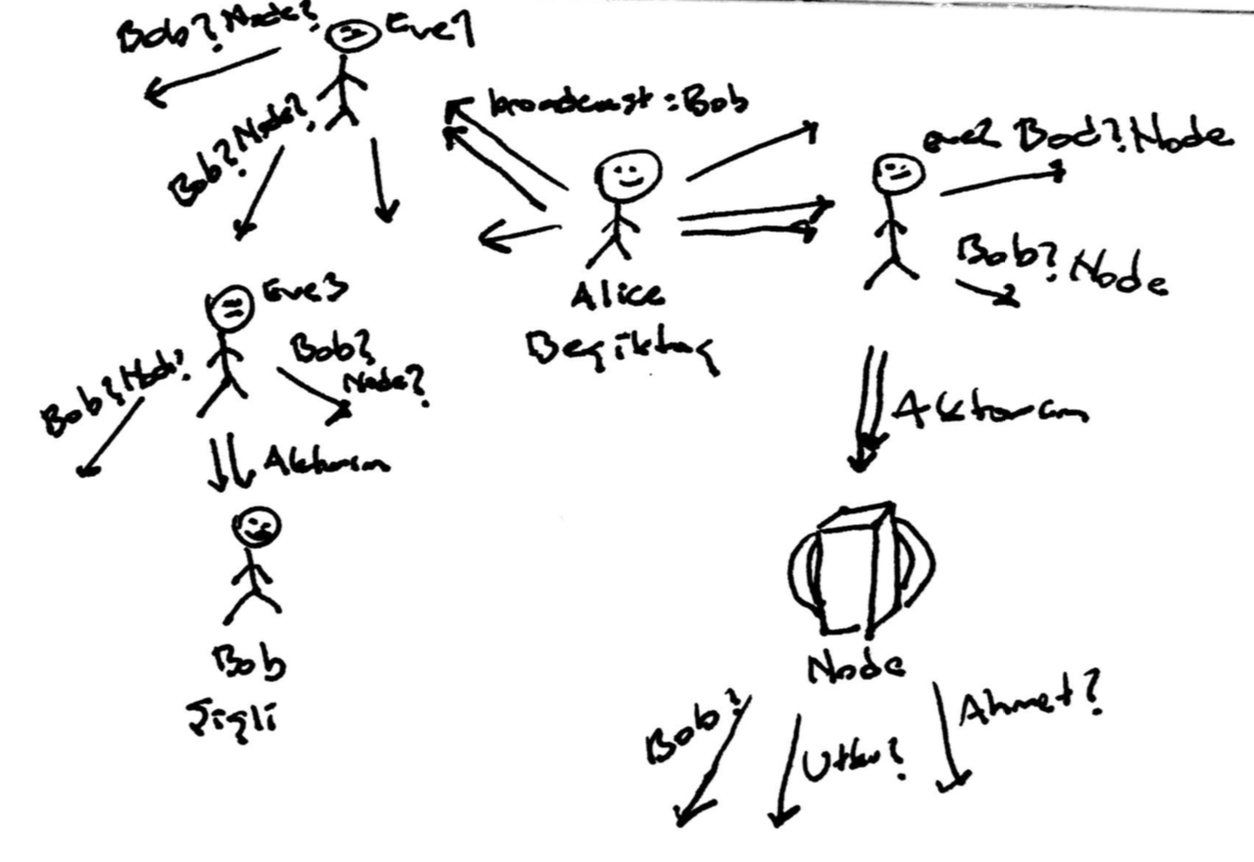 Bob? Node?
Eve1
broadcast: Bob
Bob? Node?
eve2 Bod? Node
Bob? Node
Alice
Beşiktaş
Eve3
Bob?
Node?
Bob? Node?
Aktarım
Aktarım
Bob
Şişli
Node
Bob?
Utku?
Ahmet?